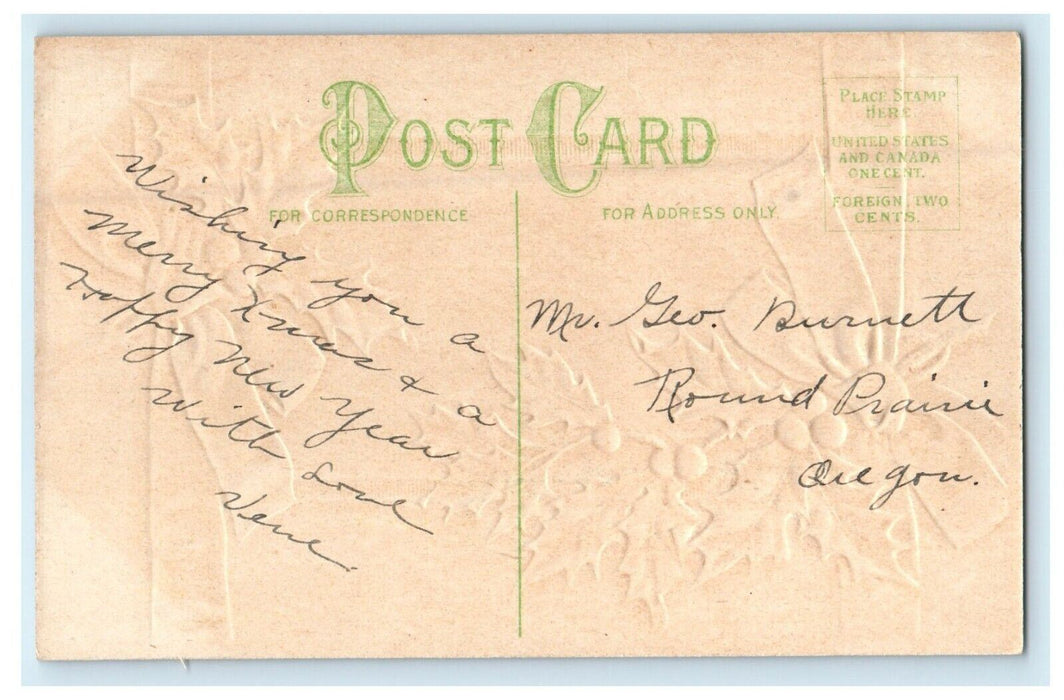 POST CARD
PLACE STAMP
HERE.
UNITED STATES
AND CANADA
ONE CENT.
FOREIGN, TWO
CENTS.
FOR CORRESPONDENCE
FOR ADDRESS ONLY.
Wishing you a
Merry Xmas & a
Happy New Year
With Love
Vene.
Mr. Geo. Burnett
Round Prairie
Oregon.